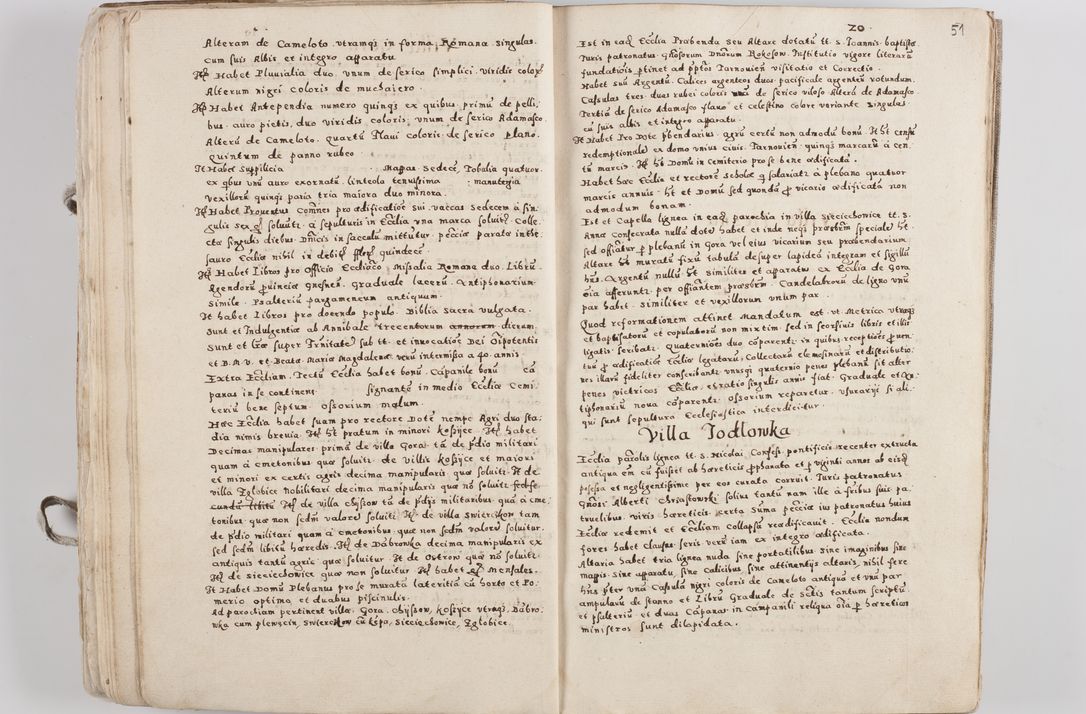 Alteram de Cameloto utramq; in forma Romana singulas
cum suis Albis et integro apparatu.
Itẽ Habet Pluvialia duo, unum de serico simplici viridis coloris
Alterum nigri coloris de muchaiero.
Itẽ Habet Antependia numero quinq; ex quibus primũ de pelli,,
bus auro pictis, duo viridis coloris, unum de serico Adamasco
Alterũ de Cameloto. quartũ flavi coloris de serico plano.
Quintum de panno rubeo.
It Habet Suppilicia Mappas Sedecẽ, Tobalia quatuor
ex qbus unũ auro exornatũ, linteola tenuissima manutergia
vexillorũ quinq; paria tria maiora duo minora.
Itẽ Habet Proventus Com̃nes pro ædificatiõe sui vaccas Sedecem à sin,,
gulis sex gͬ solvunt, à sepulturis in Ecclia una marca solvit, Colle,,
cta singulis diebus Dnicis in sacculũ mittitur. peccia parata in the,,
sauro Eccliæ nihil in debitis quindecẽ.
Itẽ Habet Libros pro Officio Eccliaco Missalia Romana duo. Librũ
Agendorũ pvinciæ Gnesnen. Graduale lacerũ. Antiphonarium
simile. Psalteriũ pargameneum antiquum.
It habet Libros pro docendo populo. Biblia Sacra vulgata.
Sunt et Indulgentiæ ab Annibale trecentorum annorum dierum,
sunt et Lræ super Trnitate sub tt. et invocatiõe Dei Oĩpotentis
et B.M.V. et Beatæ Mariæ Magdalenæ verũ intermissa a 40 annis
Extra Eccliam. Tectũ Ecclia habet bonũ. Cãpanile bonũ cã
panas in se continens signante in medio Eccliæ Cemi,,
teriũ bene septum. Ossorium malum.
Hæc Ecclia habet suam pro rectore Dotẽ nempe Agri duo sta,,
dia nimis brevia. Itẽ ht pratum in minori Koszyce. Itẽ habet
Decimas manipulares primã de villa Gora tã de pdio militari
quam à cmetonibus quæ solvitr. de villis Koszyce et maiori
et minori ex certis agris decima manipularis quæ solvitr. It de
villa Zglobice Nobilitari decima manipularis quæ nõ solvitr sed se
cundũ libitũ Itẽ de villa Chyssow tã de pdijs militaribus quã à cme
tonibus quæ non sedm valorẽ solvitr. Itẽ de villa Swierczkow tam
de pdio militari quam à cmetonibus quæ non sedm valorẽ solvitur.
sed sedm libitũ hæredis. Itẽ de Dãbrowka decima manipularis ex
antiquis tantũ agris quæ solvitur. It de Ostrow quæ nõ solvitr.
Itẽ de Sieciechowice quæ non solvitur. Itẽ habet Mensales.
It Habet Domũ Plebanus pro se muratã lateritiã cũ horto et Po,,
merio optimo et duabus piscinulis.
Ad parochiam pertinent villæ, Gora, Chyssow, Koszyce utraq;, Dãbro,,
wka cum plewczin, Swierczkow cũ Kępa, Sieciechowice, Zglobice.
20 51
Est in eadẽ Ecclia Præbenda seu Altare dotatũ tt. S. Joannis baptistæ
Juris patronatus Gnosorum Dnorum Rokosow. Institutio vigore literarũ
fundatiõis ptinet ad pptos Tarnovien visitatio et Correctio.
Habet suũ Argentũ. Calices argenteos duos pacificale argenteũ rotundum.
Casulas tres, duas rubei coloris unã de serico viloso Alterã de Adamasco
Tertiã de serico Adamasco flavo et celestino colore variante Singulas
cũ suis albis et integro apparatu.
It Habet Pro Dote pbendarius agrũ certũ non admodũ bonũ. It ht censũ
redemptionalẽ ex domo unius civis Tarnovien quinq; marcarũ à cen
tũ marcis Itẽ ht Domũ in cemiterio pro se bene ædificatã.
Habet hæc Ecclia et rectorẽ scholæ q salariatr à plebano quatuor
marcis annuis. ht et Domũ sed quondã p vicario ædificatã non
admodum bonam.
Est et Capella lignea in eadẽ parochia in villa Sieciechowice tt. S.
Annæ consecrata nullã dotẽ habet et inde neq; præsbrm specialẽ ht.
sed officiatur p plebanũ in Gora vel eius vicarium seu præbendarium
Altare ht muratũ fixũ tabulã desuper lapideã integram et sigillũ
hns. Argentũ nullũ ht similiter et apparatus ex Ecclia de Gora
oĩa afferuntr per officiantem præsbrm. Candelabrorũ de ligno unũ
par habet. similiter et vexillorum unum par.
Quod reformationem attinet Mandatum est, ut Metrica utraq;
et baptisatorũ et copulatorũ non mixtim, sed in seorsivis libris et illis
ligatis scribatr. Quaterniones duo cõparentr in quibus receptiões pven,,
tuũ p ædificatiõe Eccliæ legatarũ, Collectarũ elemosinarũ et distributio,,
nes illarũ fideliter conscribantr unusq; quaternio penes plebanũ sit alter
penes victricos Eccliæ et ratio singulis annis fiat. Graduale et An,,
tiphonariũ nova cõparentr. ossorium reparetur. usurarijs si ali,,
qui sunt sepultura Ecclesiastica interdicitur.
Villa Jodlowka
Ecclia parolis lignea tt. S. Nicolai Confess. pontificis recenter extructa
antiqua em cũ fuisset ab hæreticis pphanata et p viginti annos ab eisdẽ
possessa et negligentissime per eos curata corruit. Juris patronatus
Gnosi Alberti Chrząstowski solius tantũ nam ille à fribus suis pa,,
truelibus, viris hæreticis, certa suma pecciæ ius patronatus huius
Eccliæ redemit et Eccliam collapsã reædificavit. Ecclia nondum
fores habet clausas seris verũ iam ex integro ædificata.
Altaria habet tria lignea nuda sine portatilibus sine imaginibus sine
mappis, sine apparatu, sine Calicibus, sine attinentijs altaris, nihil fere
hns pter unã Casulã nigri coloris de Cameloto antiquã et unũ par
ampularũ de stanno et Librũ Graduale de Sctis tantum scriptũ
et psalteriũ et duas Cãpanas in Campanili reliqua oĩa p hæreticos
ministros sunt dilapidata.